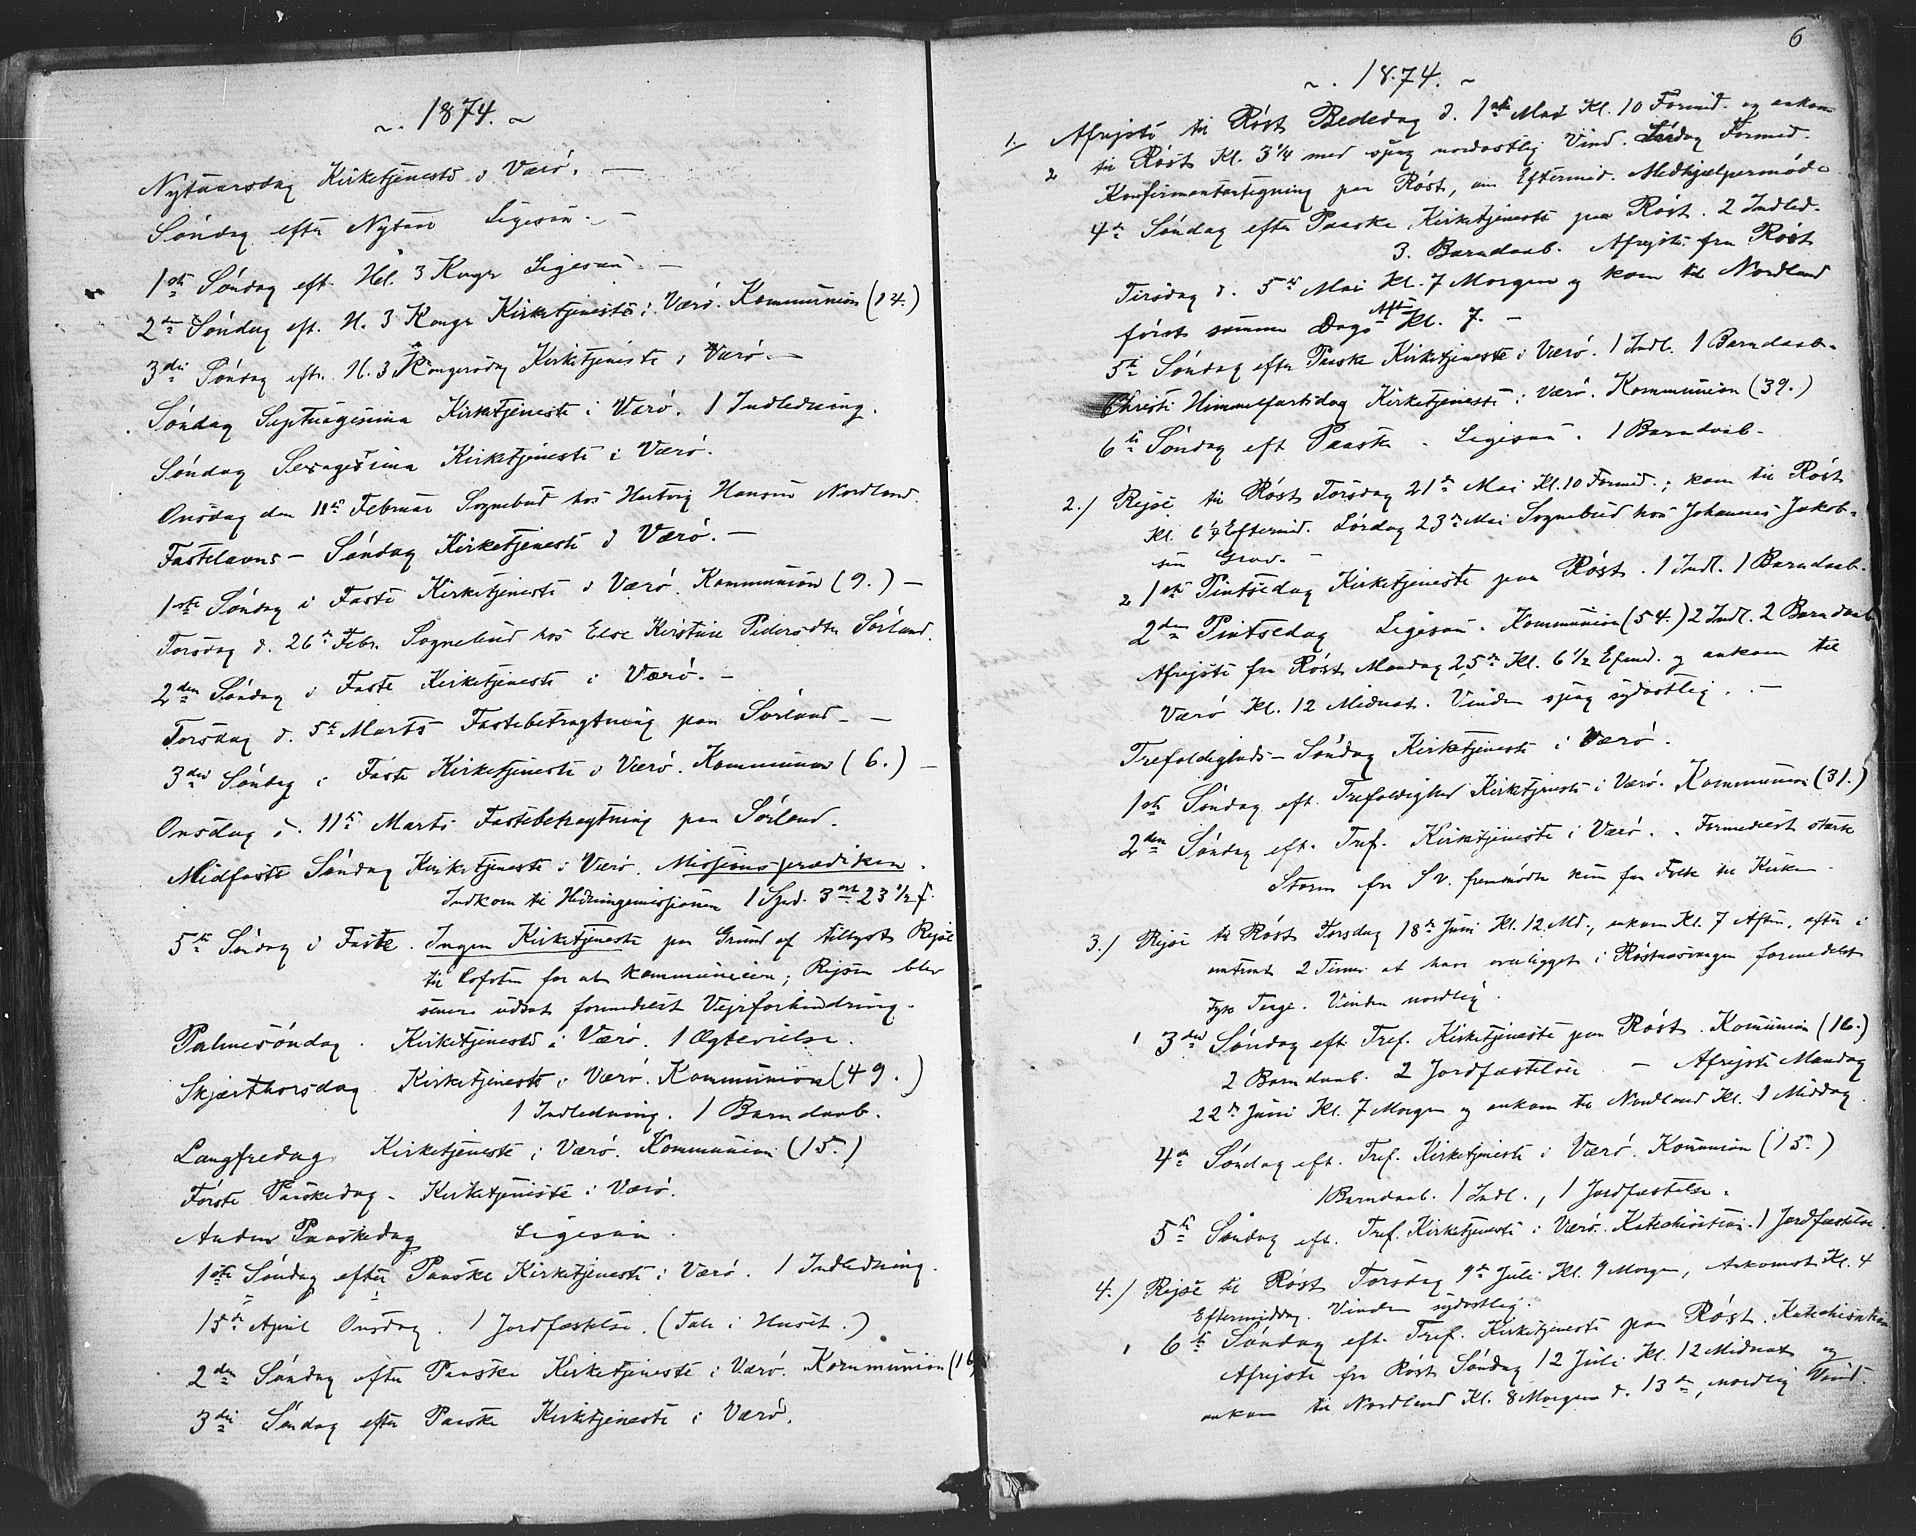 ~. 1874. ~
Nytaarsdag Kirketjeneste i Værö. —
Söndag efter Nytaar Ligesaa. —
1ste Söndag eft. Hel. 3 Konger Ligesaa. —
2den Söndag eft. H. 3 Konger Kirketjeneste i Værö. Kommunion (14.)
3die Söndag eft. H. 3 Kongersdag Kirketjeneste i Værö. —
Söndag Septuagesima Kirketjeneste i Værö. 1 Indledning.
Söndag Sexagesima Kirketjeneste i Værö.
Onsdag den 11te Februar Sognebud hos Hartvig Hansen Nordland.
Fastelavns - Söndag Kirketjeneste i Værö. —
1ste Söndag i Faste Kirketjeneste i Værö. Kommunion (9.) —
Torsdag d. 26de Febr. Sognebud hos Else Kirstine Pedersdtr Sörland.
2den Söndag i Faste Kirketjeneste i Værö. —
Torsdag d. 5te Marts Fastebetragtning paa Sörland. —
3die Söndag i Faste Kirketjeneste i Værö. Kommunion (6.) —
Onsdag d. 11te Marts Fastebetragtning paa Sörland.
Midfaste Söndag Kirketjeneste i Værö. Missionsprædiken.
Indkom til Hedningemissionen 1 Spd. 3 ort 23 1/2 s.
5te Söndag i Faste. Ingen Kirketjeneste paa Grund af tillyst Rejse
til Lofoten for at kommunicere; Rejsen blev
senere udsat formedelst Vejrforhindring.
Palmesöndag. Kirketjeneste i Værö. 1 Ægtevielse.
Skjærthorsdag Kirketjeneste i Værö. Kommunion (49.)
1 Indledning. 1 Barndaab.
Langfredag Kirketjeneste i Værö. Kommunion (15.)
Förste Paaskedag - Kirketjeneste i Værö.
Anden Paaskedag Ligesaa.
1ste Söndag efter Paaske Kirketjeneste i Værö. 1 Indledning.
15de April Onsdag. 1 Jordfæstelse. (Tale i Huset.)
2den Söndag efter Paaske Kirketjeneste i Værö. Kommunion (16
3die Söndag efter Paaske Kirketjeneste i Værö.
6
~. 1874. ~
1. Afrejste til Röst Bededag d. 1ste Mai Kl. 10 Formid. og ankom
til Röst Kl. 3 1/4 med spag nordostlig Vind. Lördag Formid.
2 Konfirmantantegning paa Röst, om Eftermid. Medhjælpermöde
4de Söndag efter Paaske Kirketjeneste paa Röst. 2 Indled.
3. Barndaab. Afrejste fra Röst
Tirsdag d. 5te Mai Kl. 7 Morgen og kom til Nordland
först samme Dags Aften Kl. 7. —
5te Söndag efter Paaske Kirketjeneste i Værö. 1 Indl. 1 Barndaab.
Christi Himmelfartsdag Kirketjeneste i Værö. Kommunion (39.)
6te Söndag eft Paaske - Ligesaa. 1 Barndaab.
2.) Rejse til Röst Torsdag 21de Mai Kl. 10 Formid.; kom til Röst
Kl. 6 1/4 Eftermid. Lördag 23de Mai Sognebud hos Johannes Jakob-
sen
2 1ste Pintsedag Kirketjeneste paa Röst. 1 Indl. 1 Barndaab.
2den Pintsedag Ligesaa. Kommunion (54.) 2 Indl. 2 Barndaab
Afrejste fra Röst Mandag 25de Kl. 6 1/2 Efmd. og ankom til
Værö Kl. 12 Midnat. Vinden spag sydostlig. —
Trefoldigheds - Söndag Kirketjeneste i Værö.
1ste Söndag eft. Trefoldighed Kirketjeneste i Værö. Kommunion (31.)
2den Söndag eft. Tref. Kirketjeneste i Værö. Formedelst stærk
Storm fra SV. fremmödte kun faa Folk til Kirken.
3.) Rejse til Röst Torsdag 18de Juni Kl. 12 Md., ankom Kl. 7 Aften, efter i
omtrent 2 Timer at have omligget i Röstnæsvaagen formedelst
tyk Taage. Vinden nordlig.
1 3die Söndag eft. Tref. Kirketjeneste paa Röst. Komunion (16.)
2 Barndaab. 2 Jordfæstelser. — Afrejste Mandag
22de Juni Kl. 7 Morgen og ankom til Nordland Kl. 1 Middag.
4de Söndag eft. Tref. Kirketjeneste i Værö. Komunion (15.)
1 Barndaab. 1 Indl., 1 Jordfæstelse.
5te Söndag eft. Tref. Kirketjeneste i Værö. Katechisation. 1 Jordfæstelse.
4.) Rejse til Röst Torsdag 9de Juli Kl. 9 Morgen, Ankomst Kl. 4
Eftermiddag. Vinden sydostlig.
1 6te Söndag eft. Tref. Kirketjeneste paa Röst. Katechisation
Afrejste fra Röst Söndag 12 Juli Kl. 12 Midnat og
ankom til Nordland Kl. 8 Morgen d. 13de, nordlig Vind.